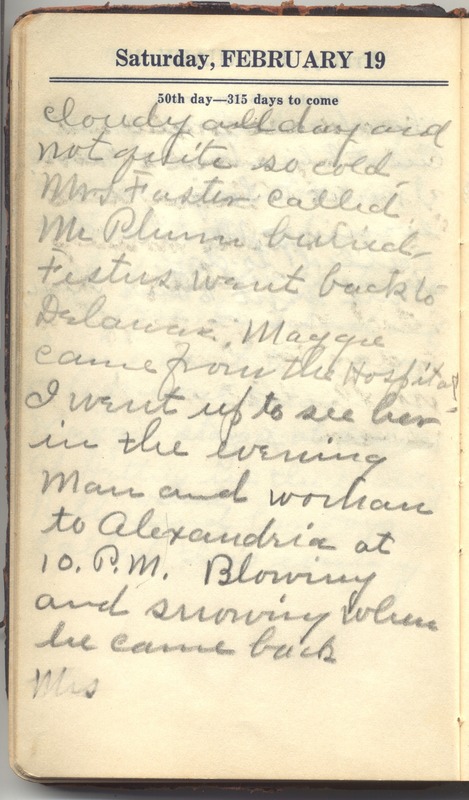 Saturday, FEBRUARY 19
50th day—315 days to come
Cloudy all day and
not quite so cold
Mrs. Foster called.
Mr Plumm buried
Festus went back to
Delaware. Maggie
came from the Hospital
I went up to see her
in the evening
Man and woman
to Alexandria at
10. P.M. Blowing
and snowing when
he came back
Mrs